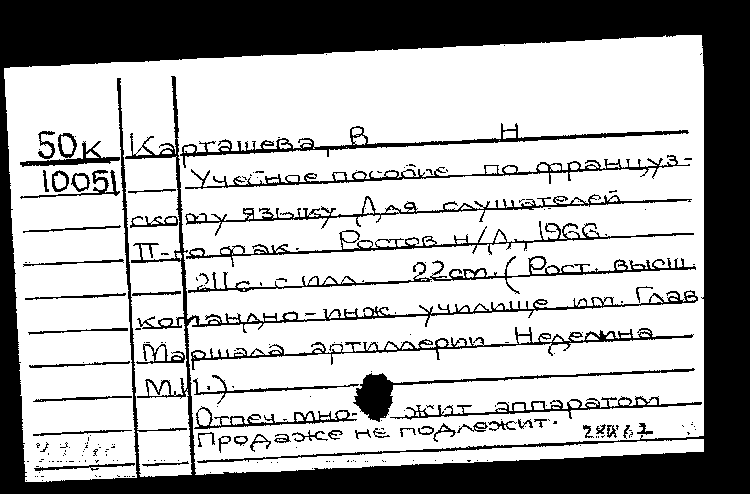 50к Карташева, В Н
10051 Учебное пособие по француз-
скому языку. Для слушателей
II-го фак. Ростов н/Д., 1966.
211 с. с илл. 22 cm. (Рост. высш.
командно-инж. училище им. Глав.
Маршала артиллерии Неделина
М.И.)
Отпеч. множит аппаратом
Продаже не подлежит.